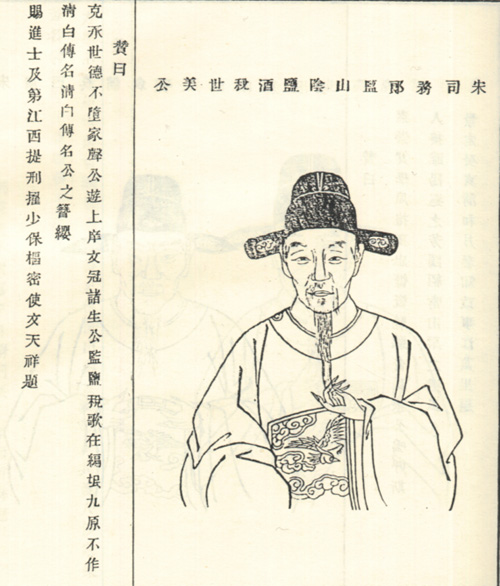 宋司務郎監山陰鹽酒稅世美公
贊曰
克承世德不墮家聲公遊上庠文冠諸生公監鹽稅歌在編氓九原不作
清白傳名清白傳名公之簪纓
賜進士及第江西提刑擢少保樞密使文天祥題